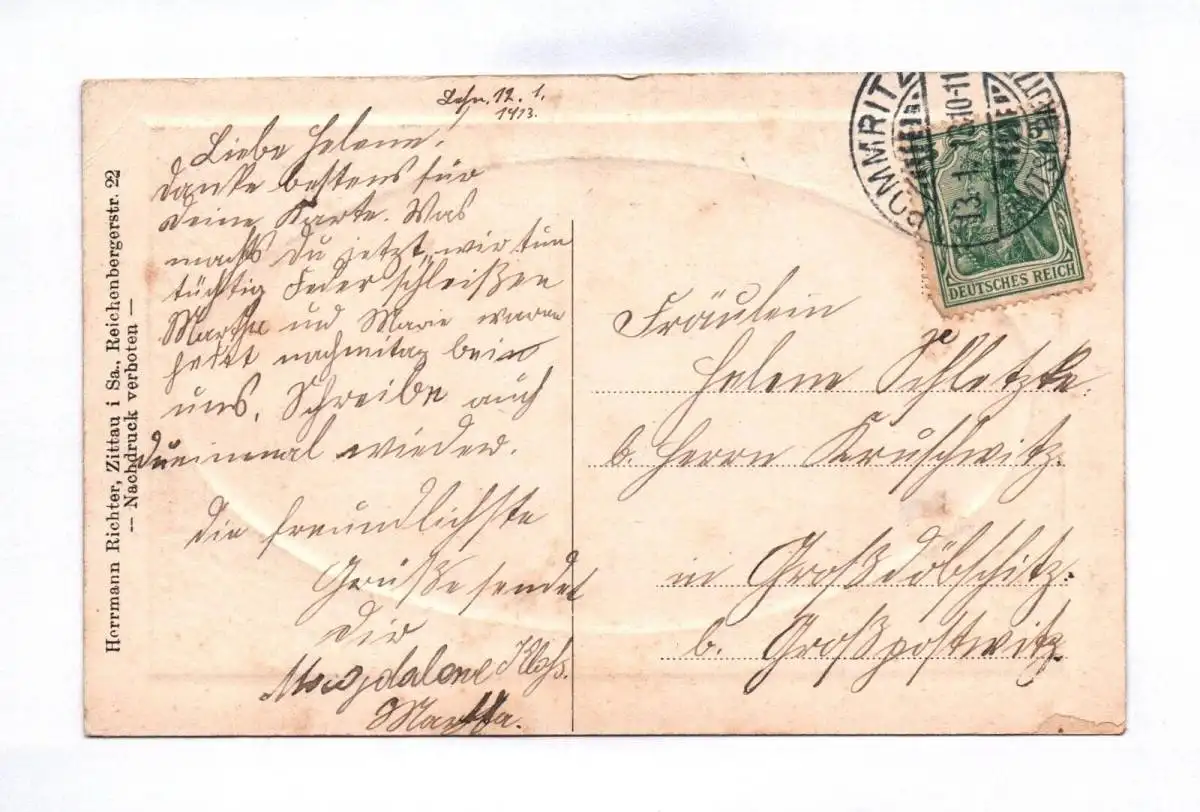 12. 1.
1913.
Liebe Helene!
Danke bestens für
Deine Karte. Was
machst Du jetzt, wir tun
tüchtig Federschleißen
Martha und Marie waren
heut nachmitag bein
uns. Schreibe auch
Du einmal wieder.
Die freundlichste
Grüße sendet
Dir
Magdalene
Martha.
Herrmann Richter, Zittau i Sa., Reichenbergerstr. 22
— Nachdruck verboten —
POMMRITZ
13. 1. 13. 10-11
DEUTSCHES REICH
Fräulein
Helene Schletzke
b. Herrn Kruschwitz.
in Großdöbschitz.
b. Großpostwitz